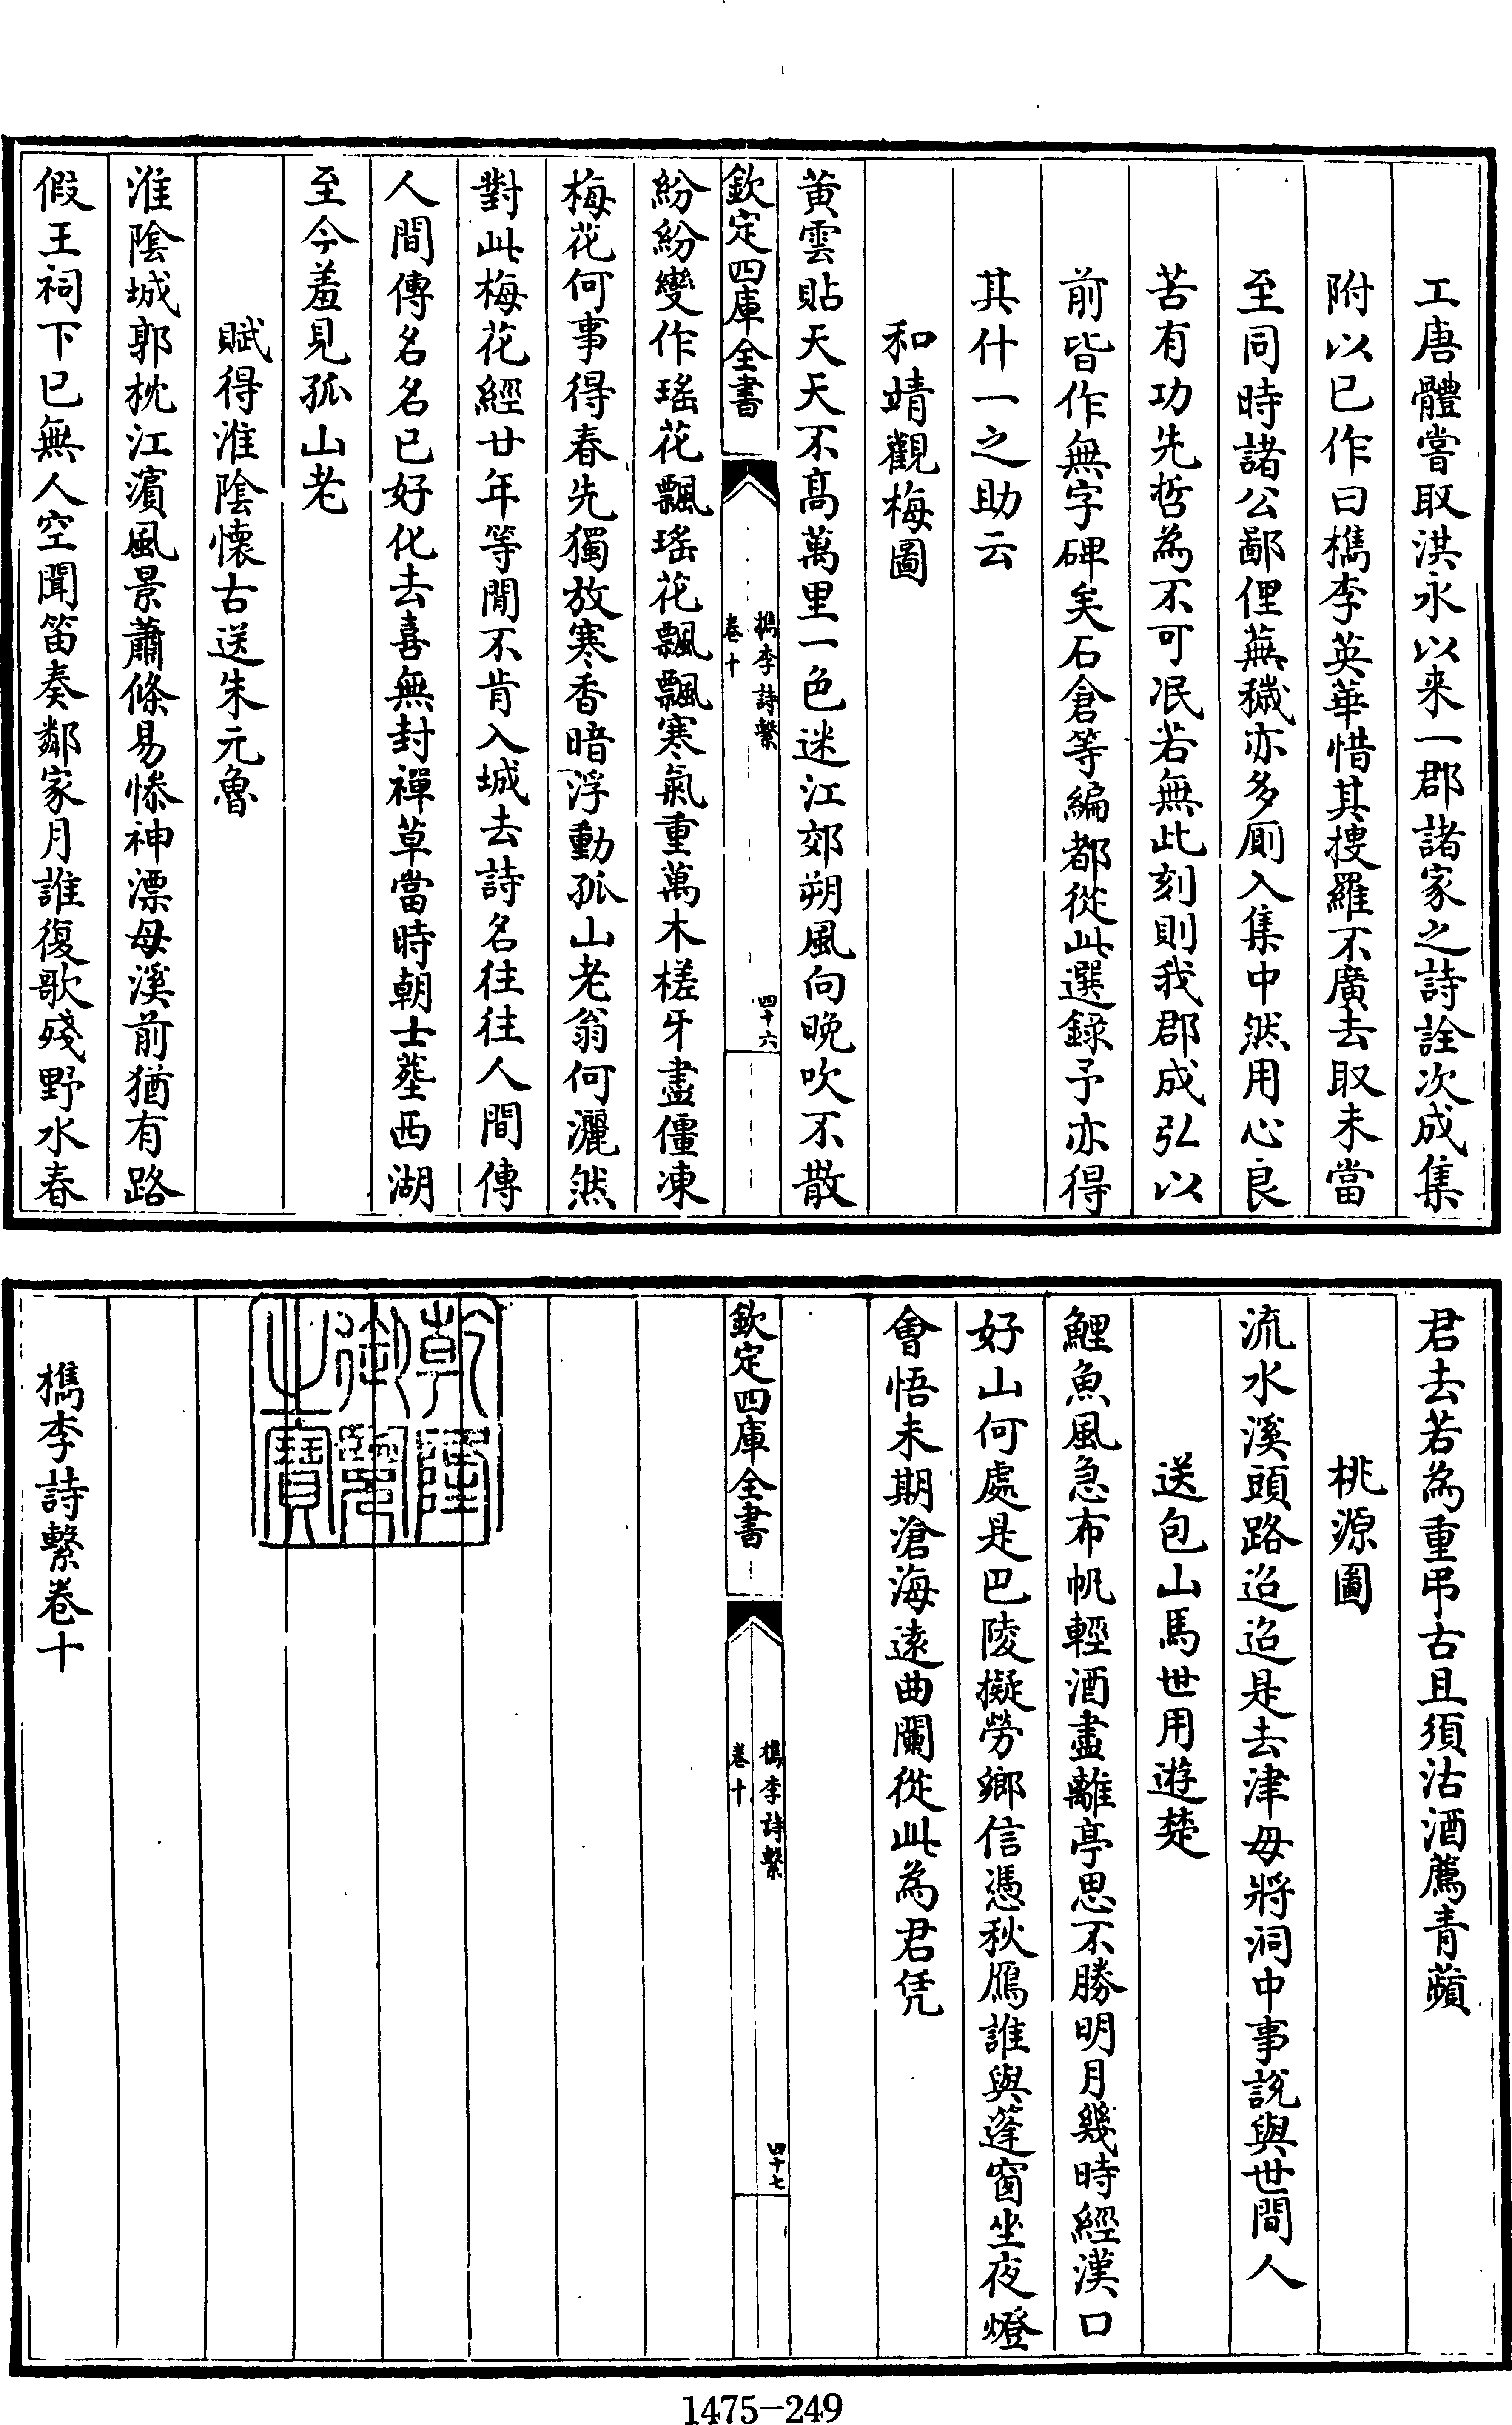 工唐體嘗取洪永以来一郡諸家之詩詮次成集
附以已作曰檇李英華惜其搜羅不廣去取未當
至同時諸公鄙俚蕪穢亦多厠入集中然用心良
苦有功先哲為不可泯若無此刻則我郡成弘以
前皆作無字碑矣石倉等編都從此選錄予亦得
其什一之助云
和靖觀梅圖
黄雲貼天天不高萬里一色迷江郊朔風向晚吹不散
欽定四庫全書
檇李詩繫
卷十
四十六
紛紛變作瑤花飄瑤花飄飄寒氣重萬木槎牙盡僵凍
梅花何事得春先獨放寒香暗浮動孤山老翁何灑然
對此梅花經廿年等閒不肯入城去詩名往往人間傳
人間傳名名已好化去喜無封禪草當時朝士塟西湖
至今羞見孤山老
賦得淮陰懷古送朱元魯
淮陰城郭枕江濵風景蕭條易慘神漂母溪前猶有路
假王祠下已無人空聞笛奏鄰家月誰復歌殘野水春
君去若為重弔古且須沽酒薦青蘋
桃源圖
流水溪頭路迢迢是去津毋將洞中事說與世間人
送包山馬世用遊楚
鯉魚風急布帆輕酒盡離亭思不勝明月幾時經漢口
好山何處是巴陵擬勞鄉信憑秋鴈誰與蓬窗坐夜燈
會悟未期滄海遠曲闌從此為君凭
欽定四庫全書
檇李詩繫
卷十
四十七
乾隆
御覽
之寶
檇李詩繫卷十
1475-249